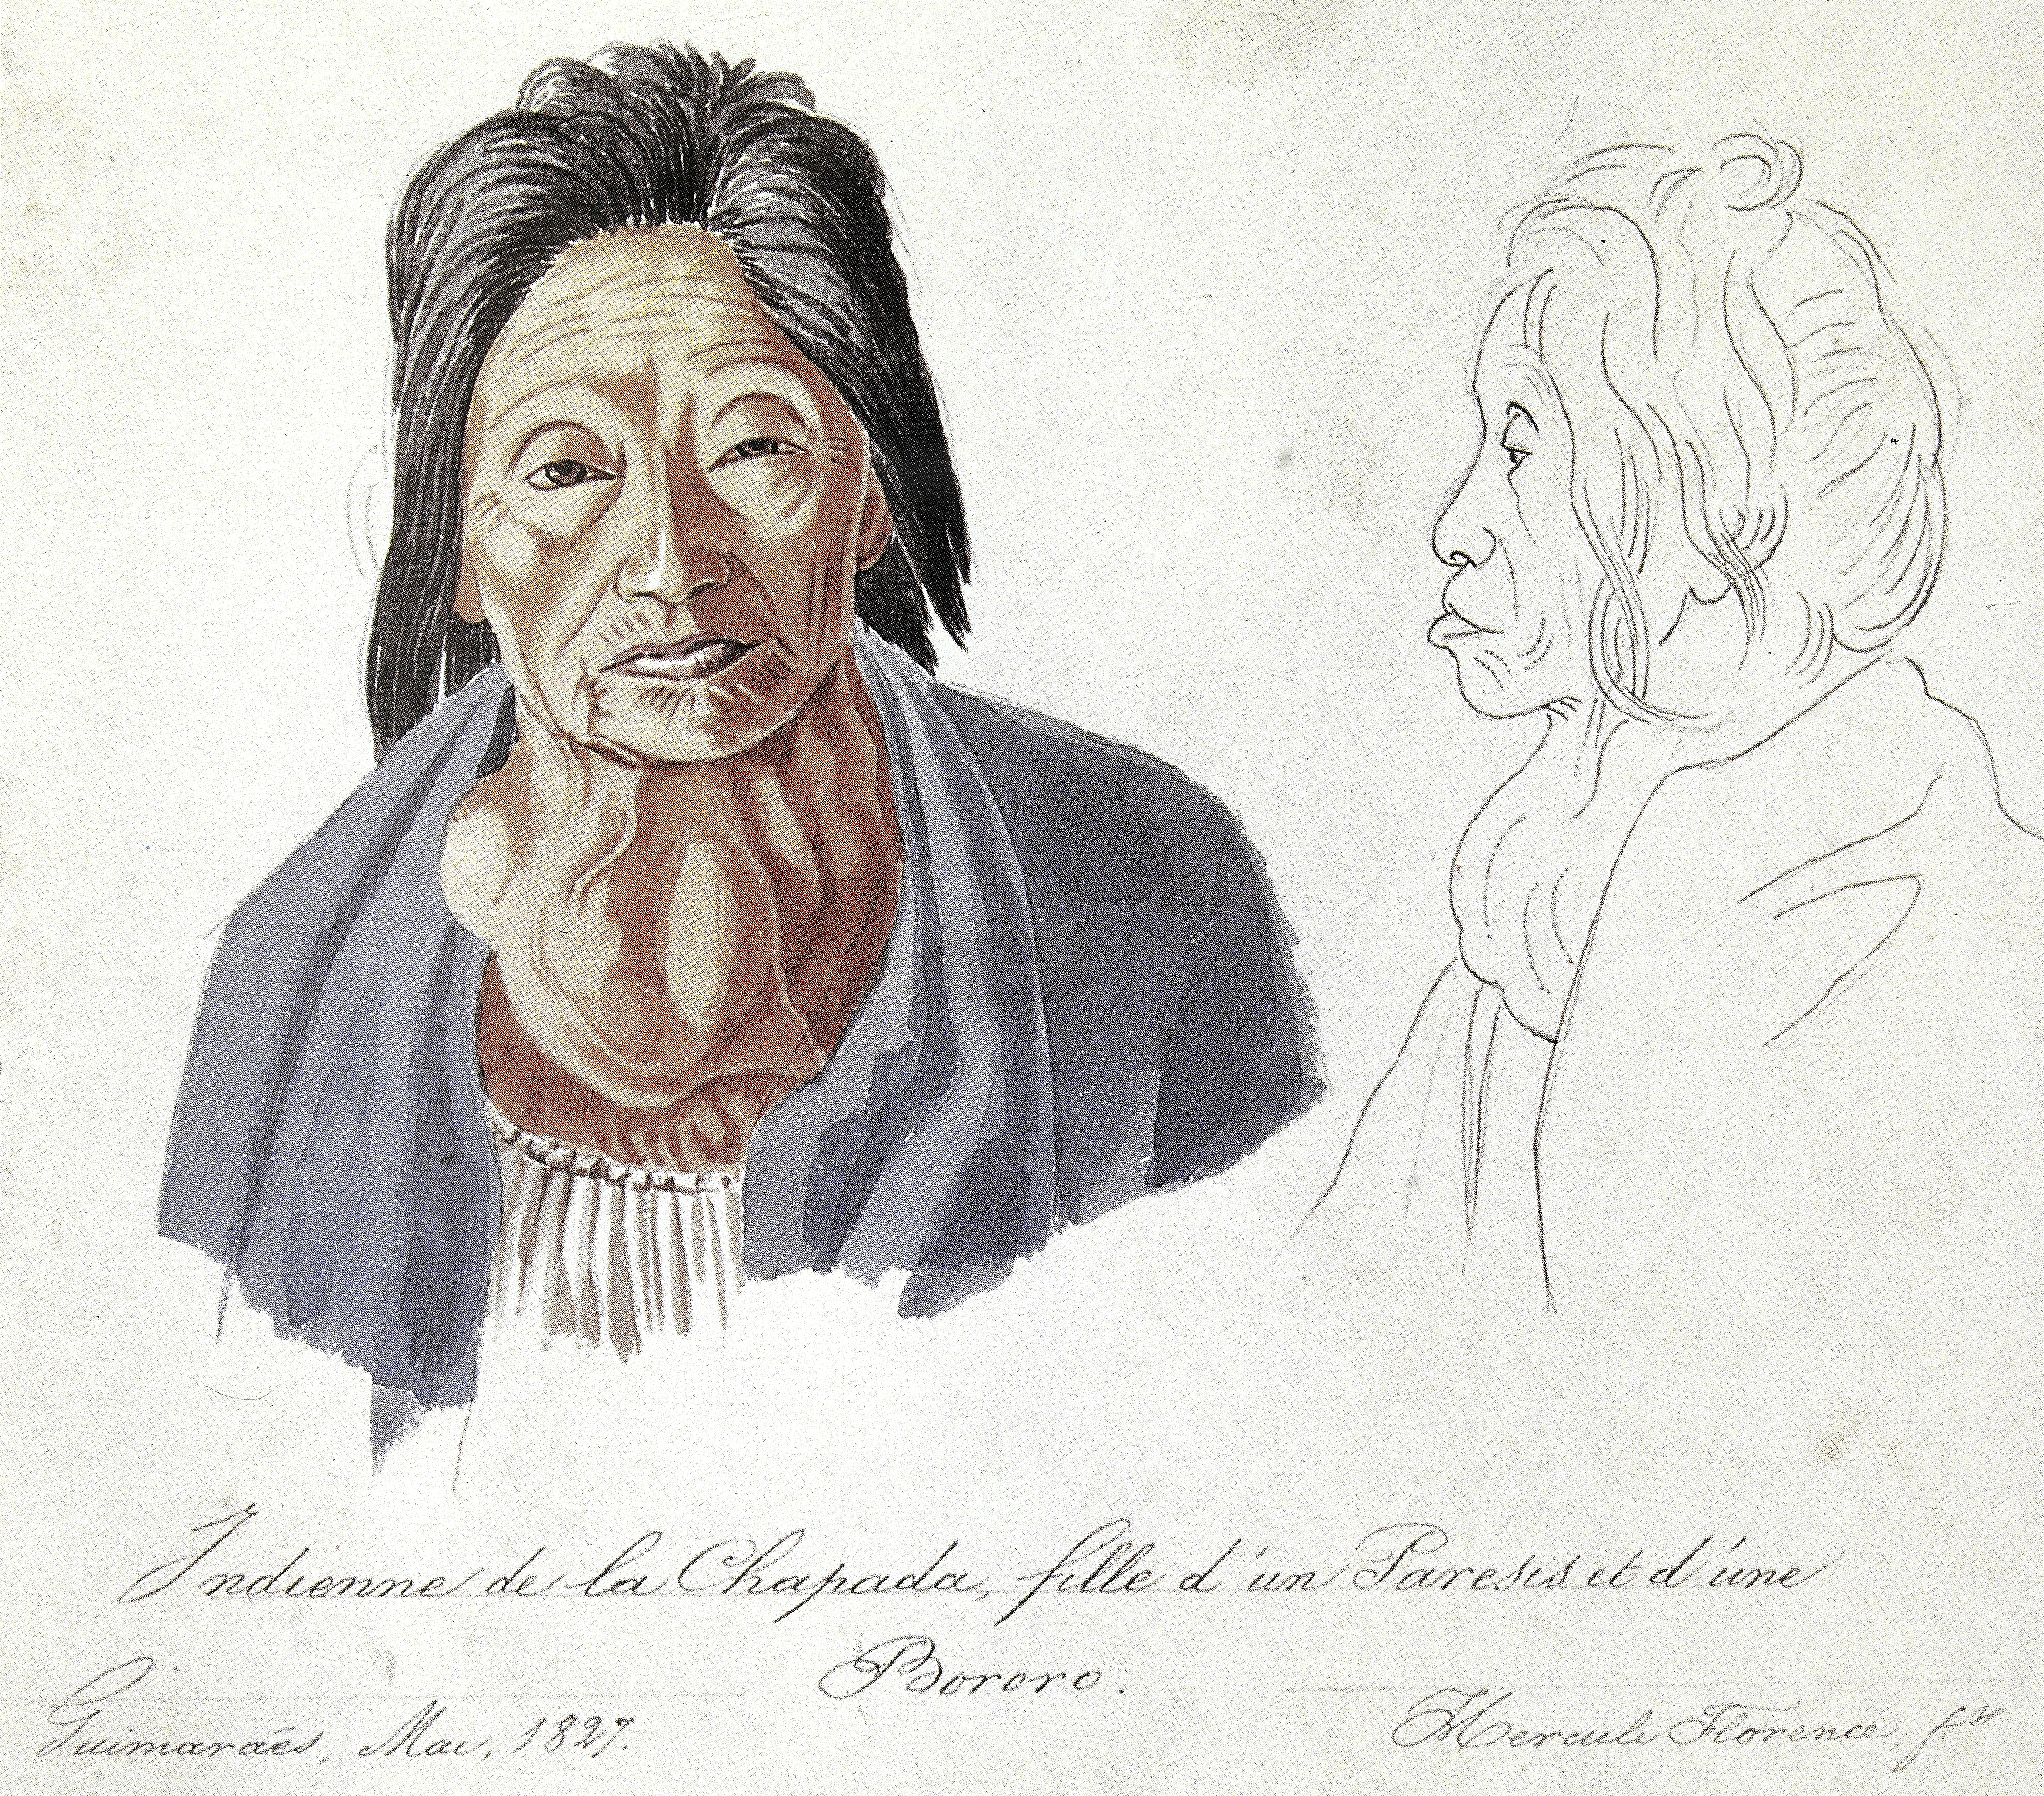 Indienne de la Chapada, fille d'un Paresis et d'une
Bororo.
Guimaraẽs, Mai, 1827.
Hercule Florence, f.